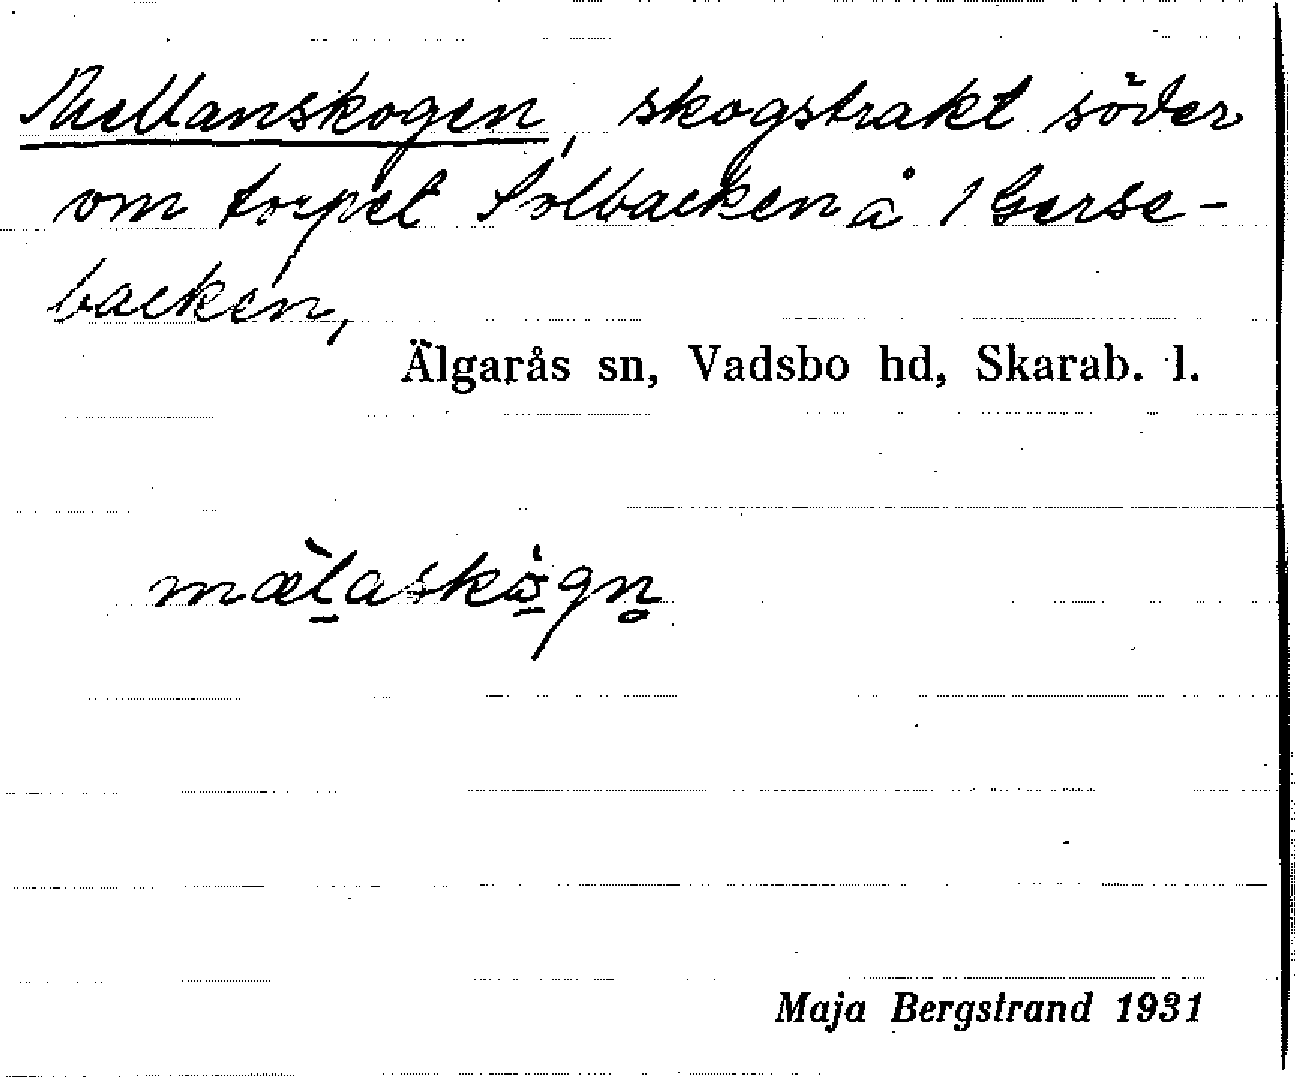 Mellanskogen, skogstrakt söder
om torpet Solbacken å 1 Gerse-
backen,
Älgarås sn, Vadsbo hd, Skarab. l.
mæ̀l̠askò̠gn̥
Maja Bergstrand 1931